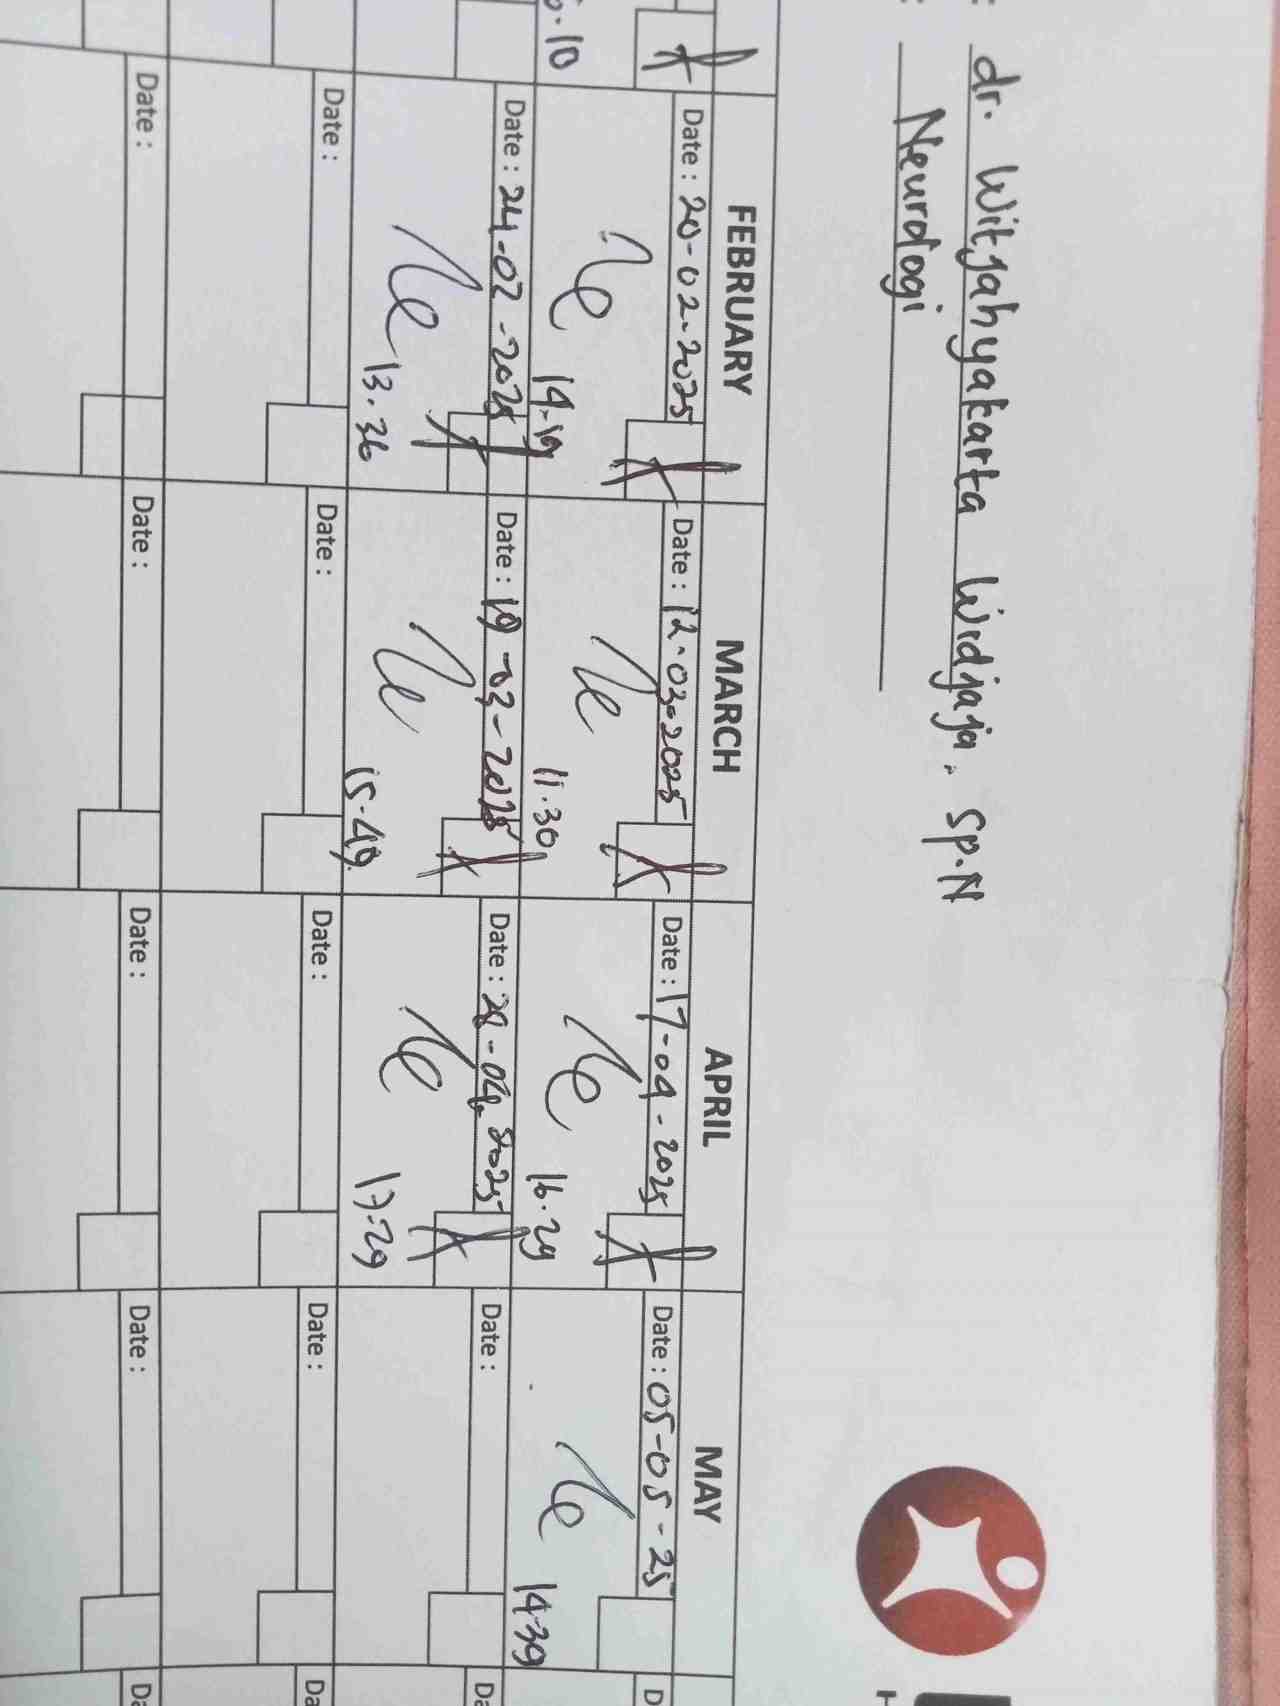 : dr. Witjahyakarta Widjaja. Sp.N
: Neurologi
FEBRUARY MARCH APRIL MAY
Date : 20-02-2025 Date : 12-03-2025 Date : 17-04-2025 Date : 05-05-25
.10 14-19 11.30 16.29 14-39
Date : 24-02-2025 Date : 19-03-2025 Date : 28-04-2025 Date :
13.36 15-49 17:29
Date : Date : Date : Date :
Date : Date : Date : Date :